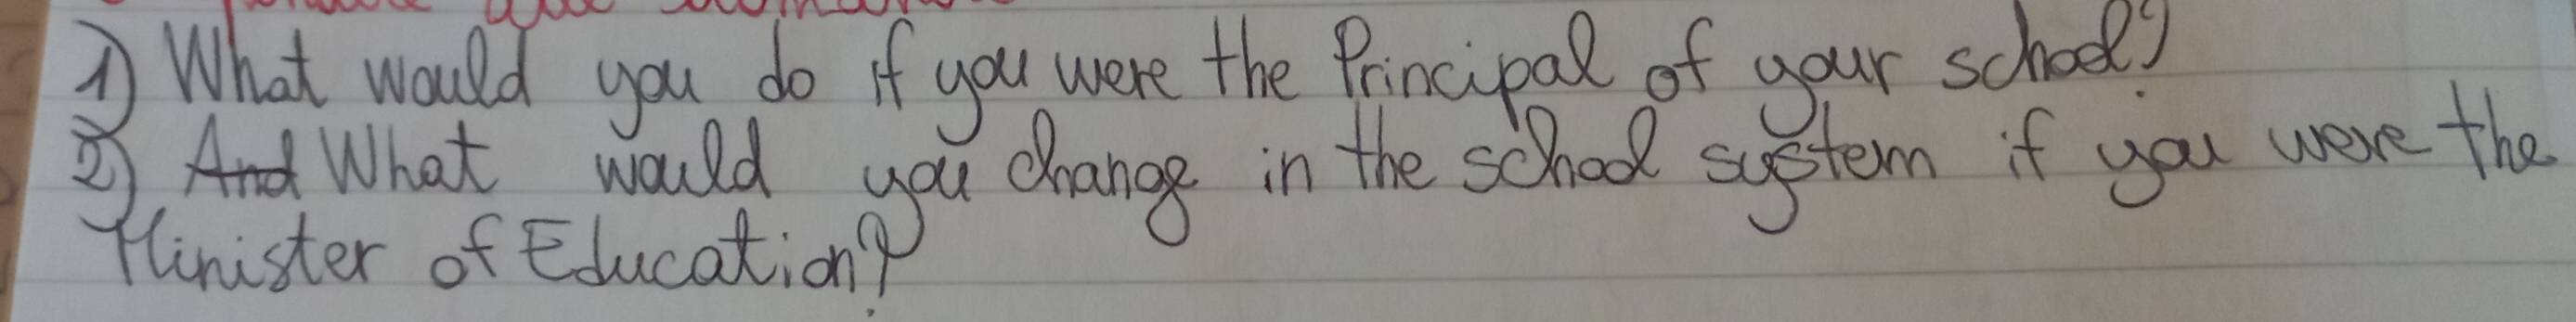 1) What would you do if you were the Principal of your school?
2) And What would you change in the school system if you were the
Minister of Education?